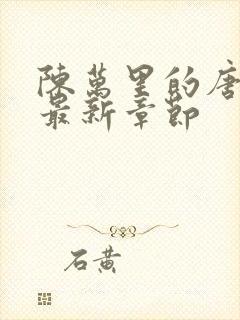 陳萬里的唐
最新章節
石黃